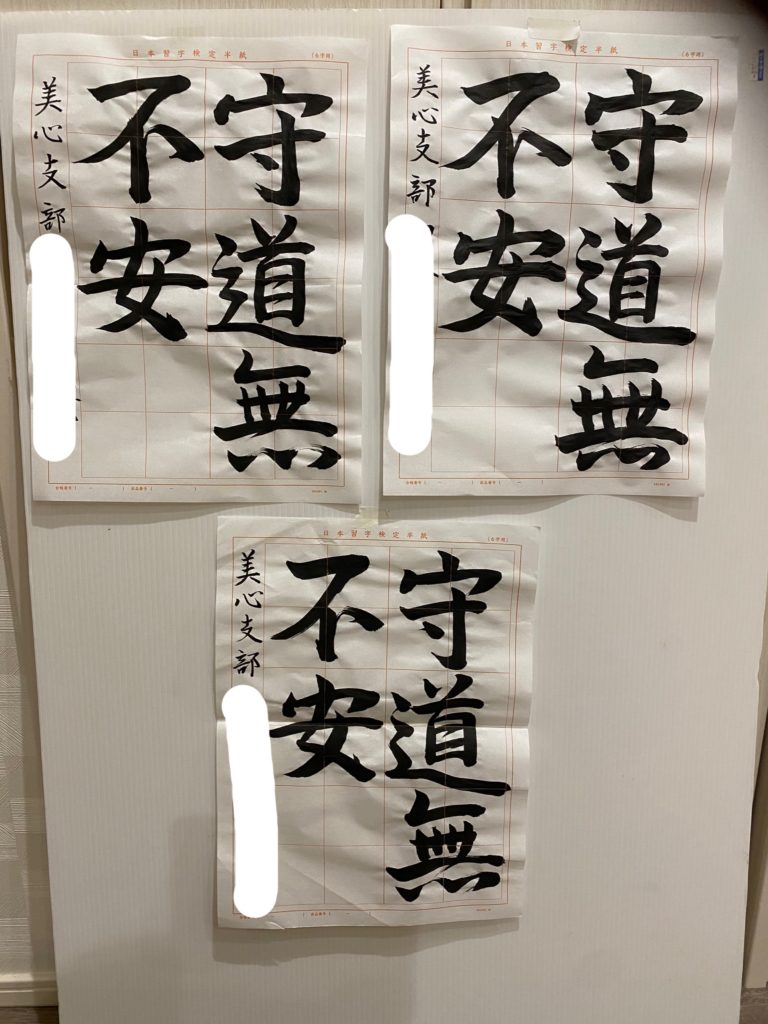 日本習字検定半紙
(6字用)
守道無
不安
美心支部
日本習字検定半紙
(6字用)
守道無
不安
美心支部
日本習字検定半紙
(6字用)
守道無
不安
美心支部